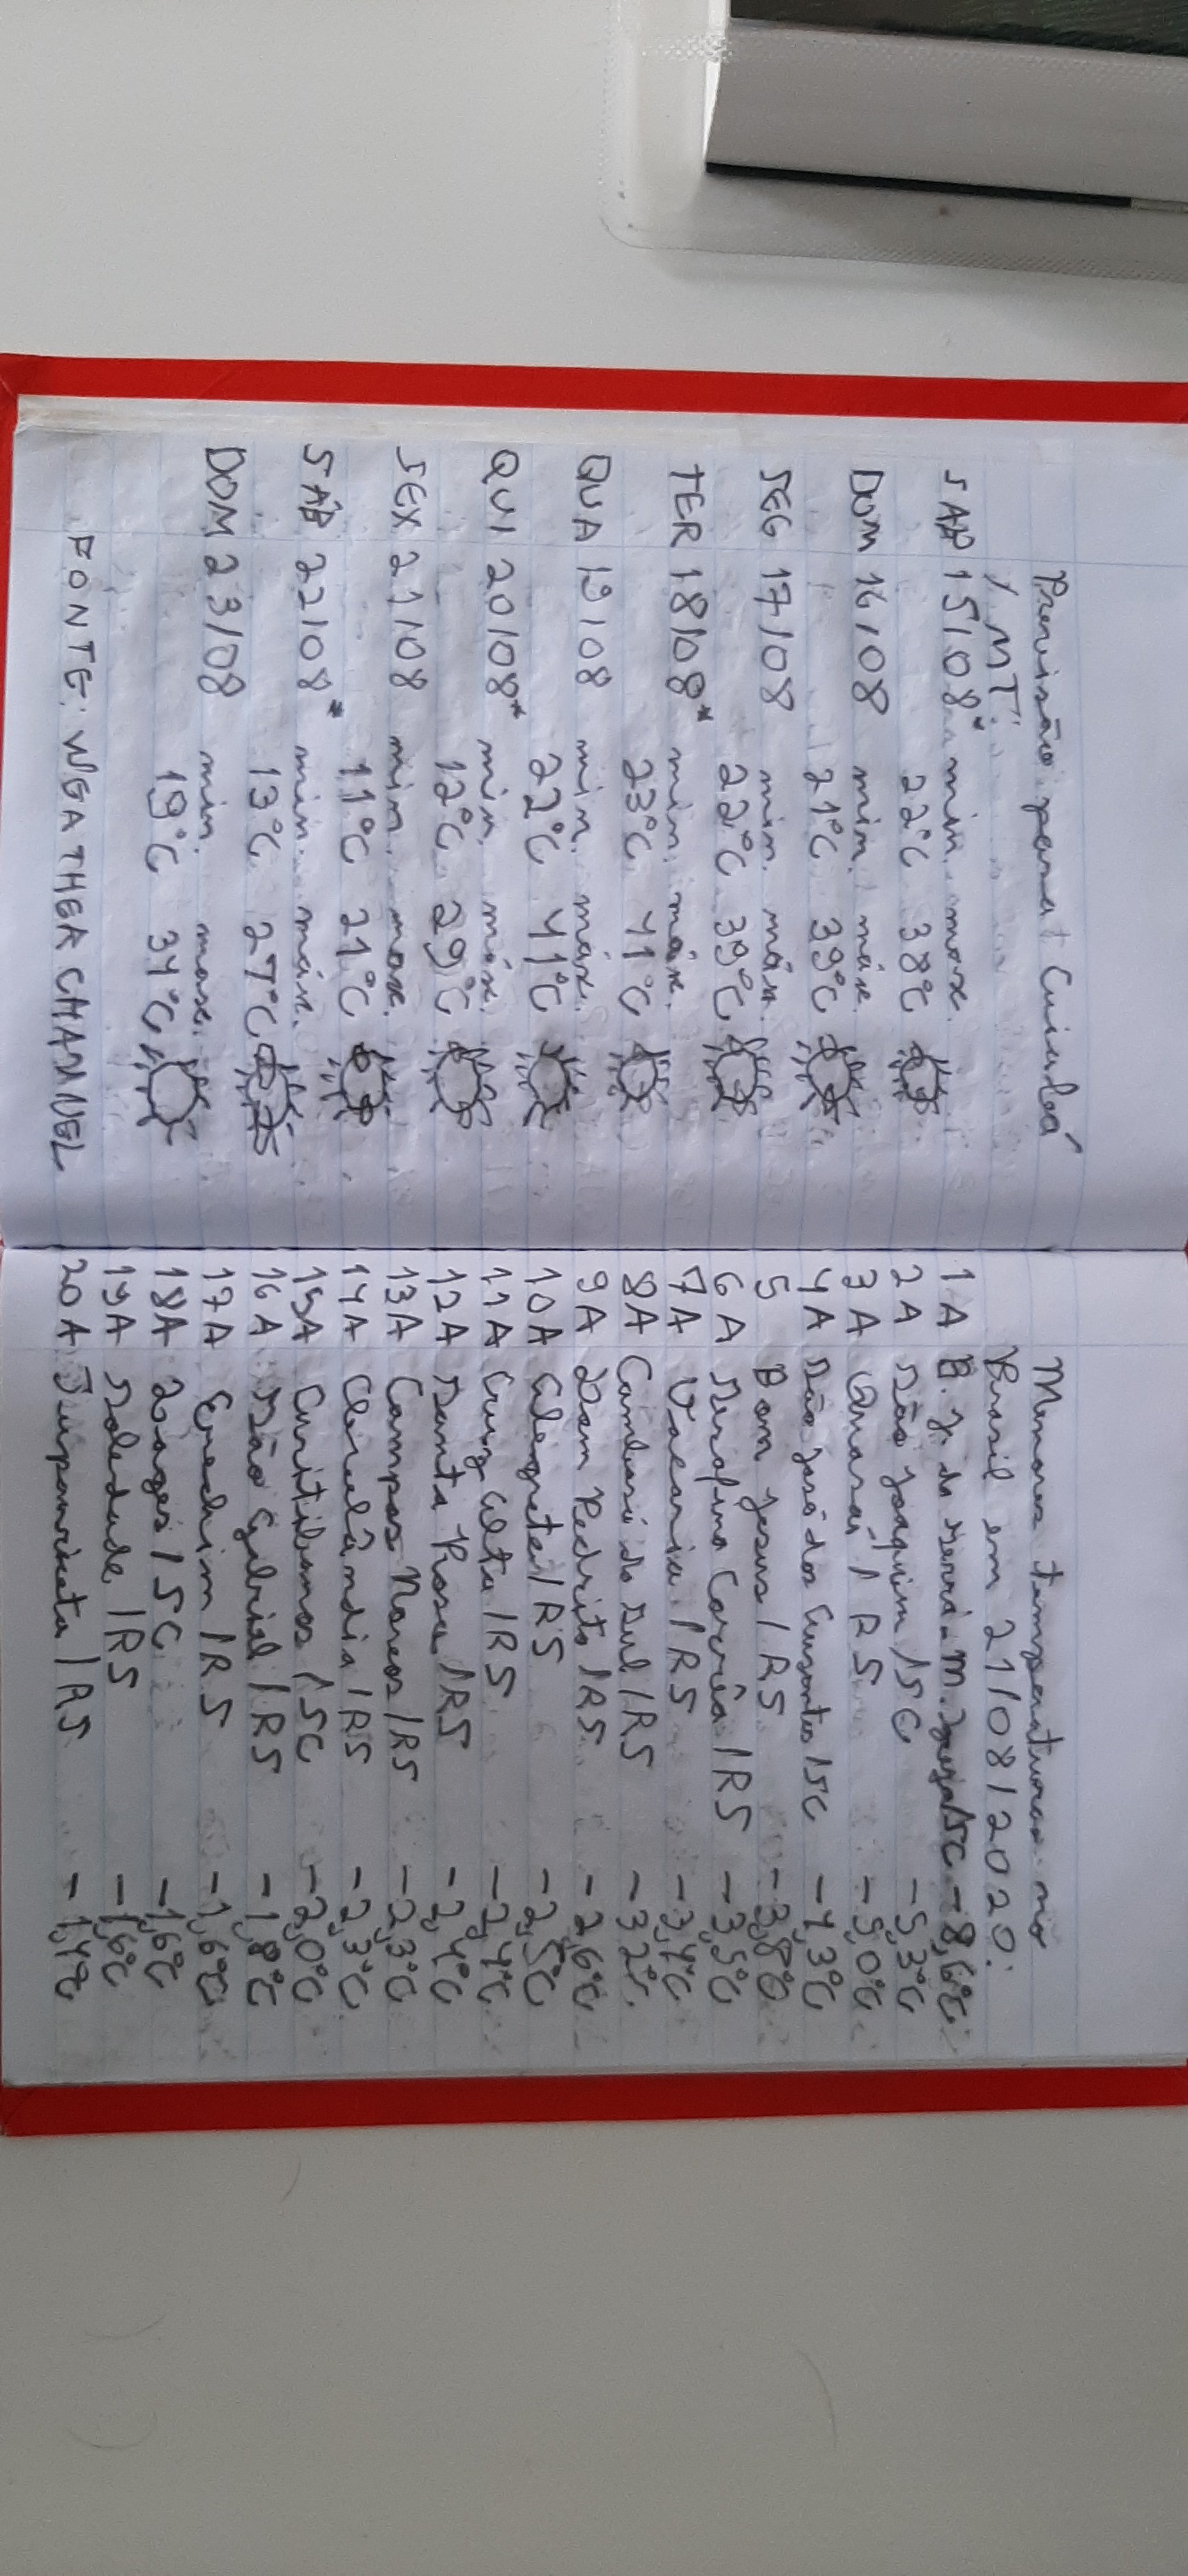 Previsão para Cuiabá
/ MT:
SAB 15/08* min. max.
22°C 38°C
DOM 16/08 min. máx.
21°C 39°C
SEG 17/08 min. máx.
22°C 39°C
TER 18/08* min. máx.
23°C 41°C
QUA 19/08 min. máx.
22°C 41°C
QUI 20/08* min. máx.
12°C 29°C
SEX 21/08 min. max.
11°C 21°C
SÁB 22/08* min. máx.
13°C 27°C
DOM 23/08 min. max.
19°C 34°C
FONTE: WEATHER CHANNEL
Menores temperaturas no
Brasil em 21/08/2020:
1A B. J. da Serra - M. Igreja/SC -8,6°C
2A São Joaquim/SC -5,3°C
3A Quaraí/RS -5,0°C
4A São José dos Ausentes/SC -4,3°C
5 Bom Jesus/RS -3,8°C
6A Serafina Corrêa/RS -3,5°C
7A Vacaria/RS -3,4°C
8A Cambará do Sul/RS -3,2°C
9A Dom Pedrito/RS -2,6°C
10A Alegrete/RS -2,5°C
11A Cruz Alta/RS -2,4°C
12A Santa Rosa/RS -2,4°C
13A Campos Novos/RS -2,3°C
14A /RS -2,3°C
15A Curitibanos/SC -2,0°C
16A São Gabriel/RS -1,8°C
17A Erechim/RS -1,6°C
18A Lages/SC -1,6°C
19A Soledade/RS -1,6°C
20A /RS -1,4°C